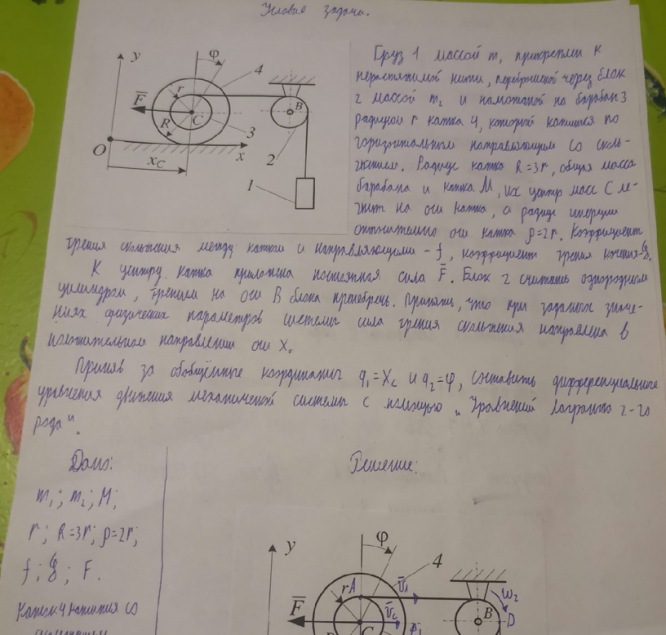 Условие задачи.
Груз 1 массой m, прикреплен к
нерастяжимой нити, переброшенной через блок
2 массой m₂ и намотанной на барабан 3
радиусом r катка 4, который катится по
горизонтальным направляющим со сколь-
жением. Радиус катка R=3r, общая масса
барабана и катка M, их центр масс C ле-
жит на оси катка, а радиус инерции
относительно оси катка ρ=2r. Коэффициент
трения скольжения между катком и направляющими - f, коэффициент трения качения -
К центру катка приложена постоянная сила F̄. Блок 2 считать однородным
цилиндром, трением на оси B блока пренебречь. Принять, что при заданных значе-
ниях физических параметров системы сила трения скольжения направлена в
положительном направлении оси X.
Приняв за обобщенные координаты q₁=X_C и q₂=φ, составить дифференциальные
уравнения движения механической системы с помощью „Уравнений Лагранжа 2-го
рода".
y
φ
4
F̄
r
C
B
R
3
2
O
x_C
x
1
Дано:
m₁; m₂; M;
r; R=3r; ρ=2r;
f; ; F.
Каток 4 катится со
Решение:
y
φ
4
rA
V̄₁
F̄
V̄c
C
B
ω₂
D